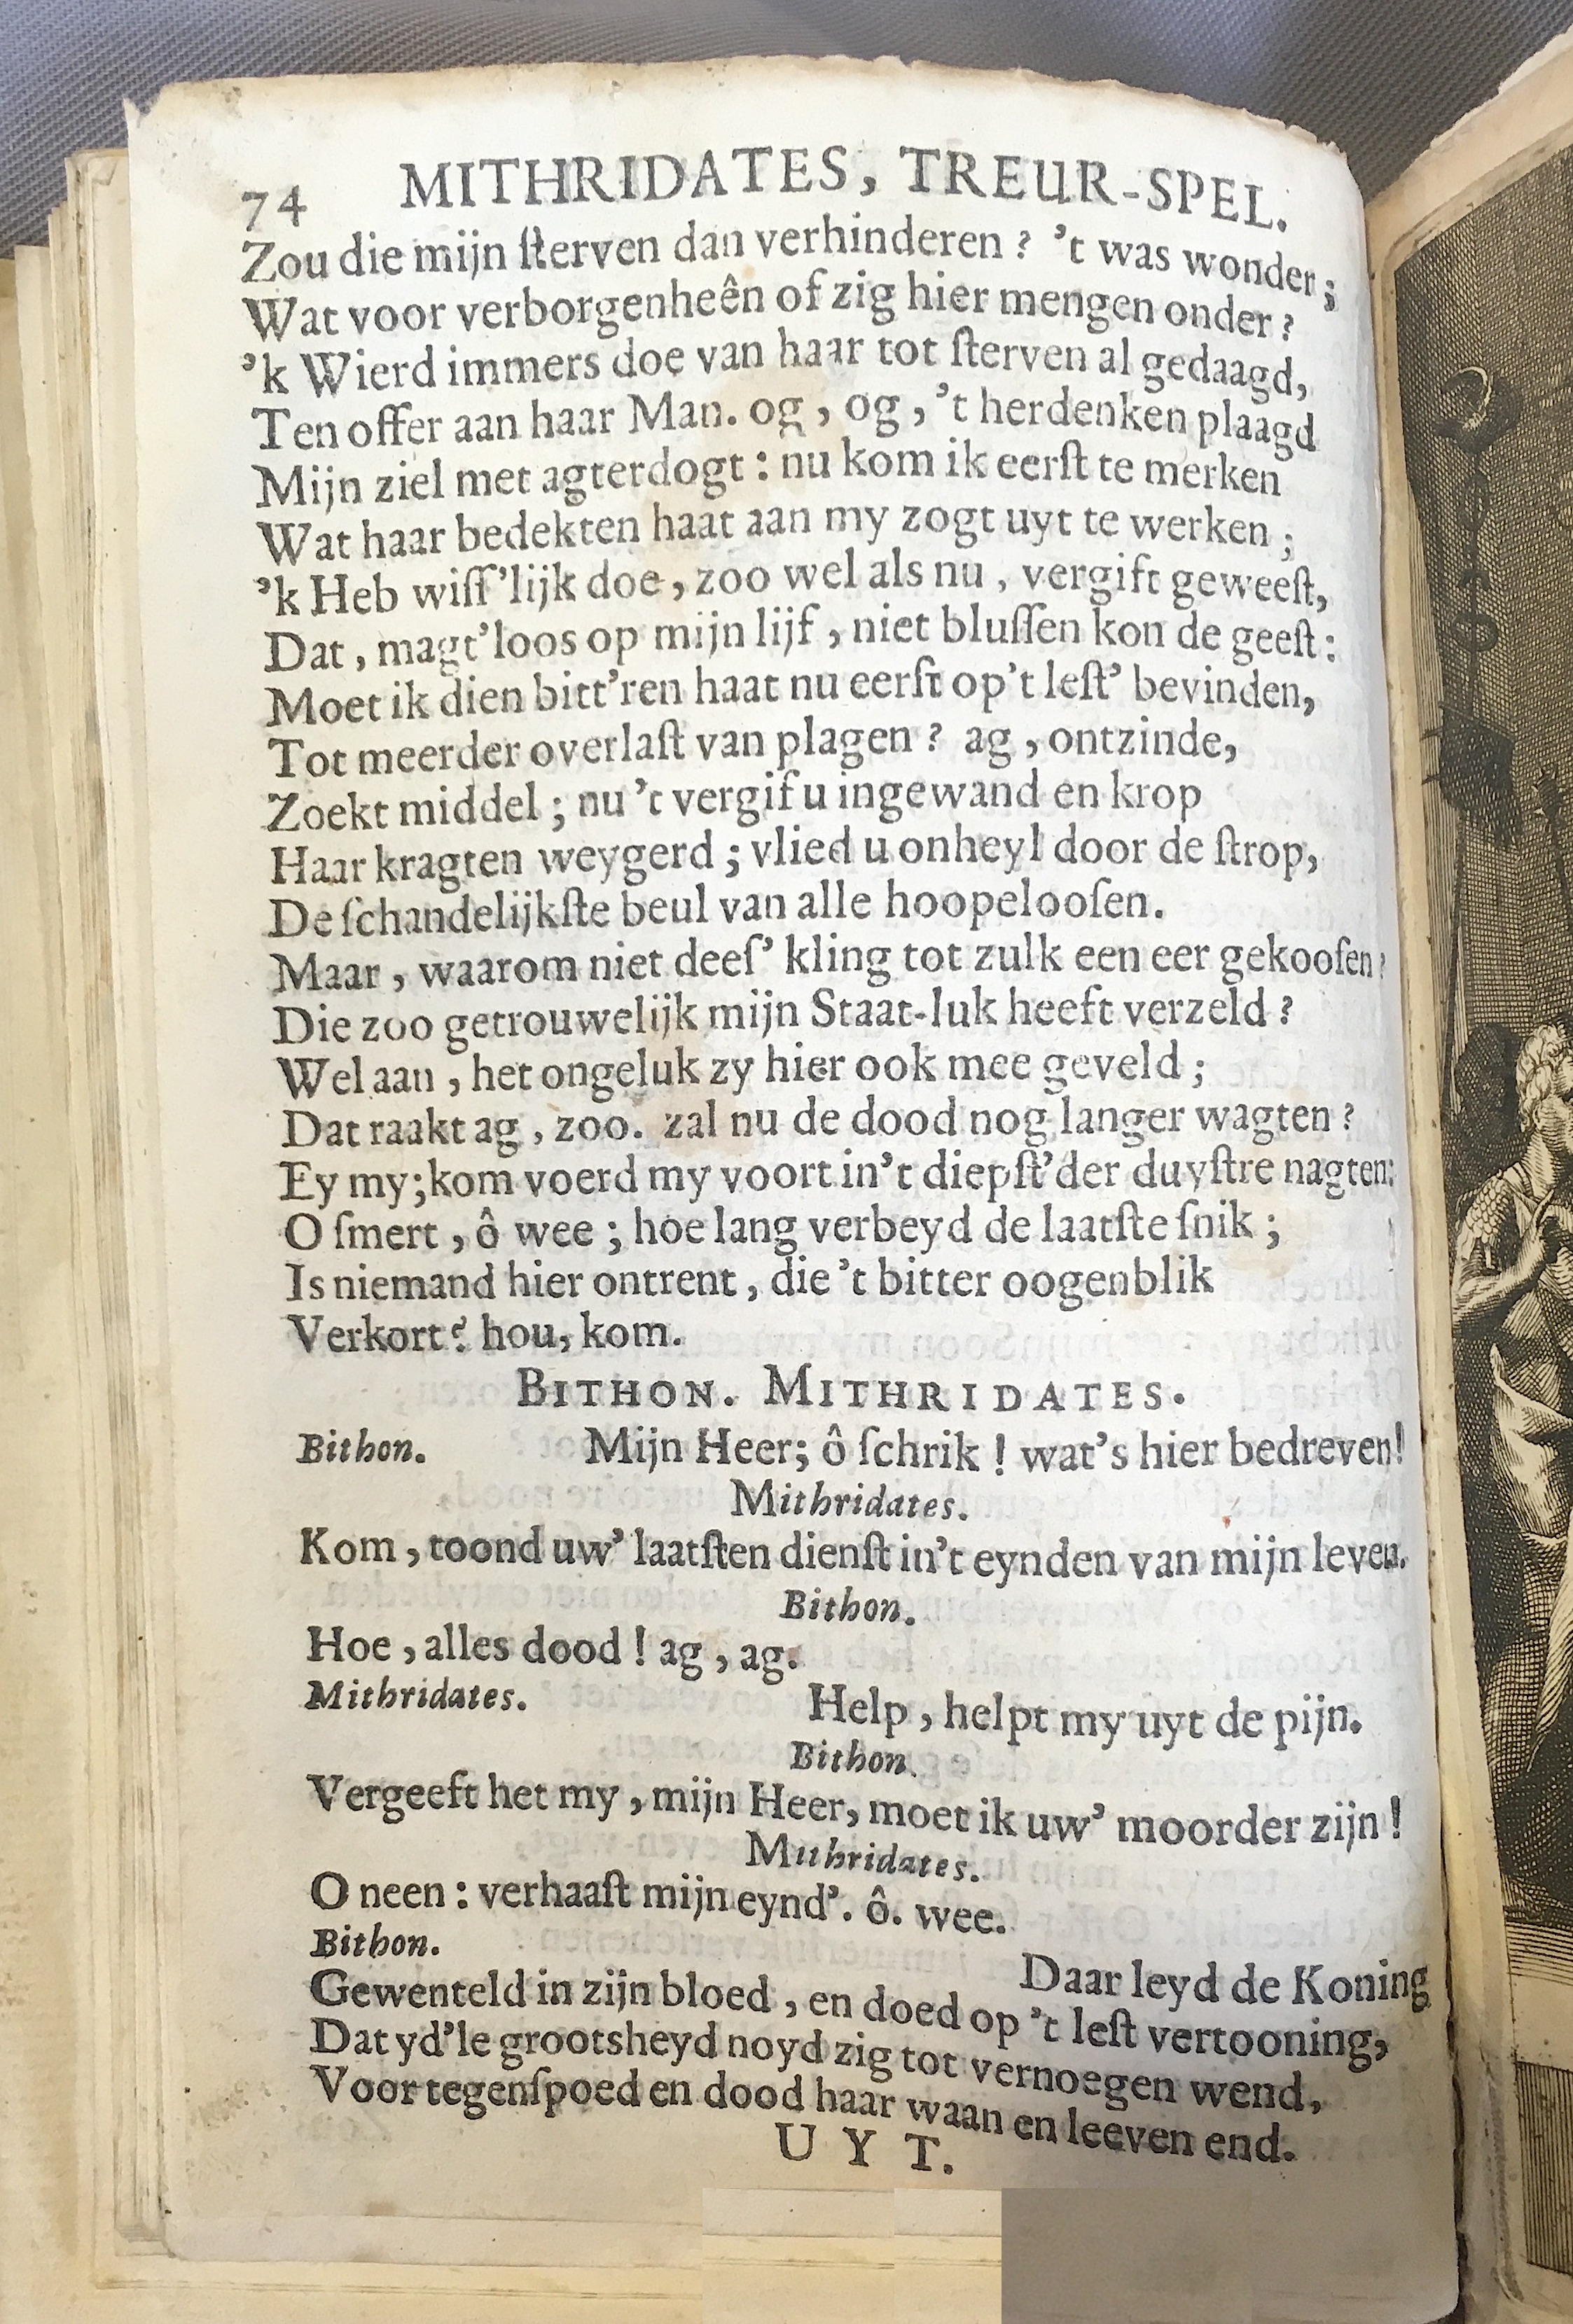 74 MITHRIDATES, TREUR-SPEL.
Zou die mijn ſterven dan verhinderen? 't was wonder;
Wat voor verborgenheên of zig hier mengen onder?
'k Wierd immers doe van haar tot ſterven al gedaagd,
Ten offer aan haar Man. og, og, 't herdenken plaagd
Mijn ziel met agterdogt: nu kom ik eerſt te merken
Wat haar bedekten haat aan my zogt uyt te werken;
'k Heb wiſſ'lijk doe, zoo wel als nu, vergift geweeſt,
Dat, magt'loos op mijn lijf, niet bluſſen kon de geeſt:
Moet ik dien bitt'ren haat nu eerſt op't leſt' bevinden,
Tot meerder overlaſt van plagen? ag, ontzinde,
Zoekt middel; nu 't vergif u ingewand en krop
Haar kragten weygerd; vlied u onheyl door de ſtrop,
De ſchandelijkſte beul van alle hoopelooſen.
Maar, waarom niet deeſ' kling tot zulk een eer gekooſen?
Die zoo getrouwelijk mijn Staat-luk heeft verzeld?
Wel aan, het ongeluk zy hier ook mee geveld;
Dat raakt ag, zoo. zal nu de dood nog langer wagten?
Ey my; kom voerd my voort in't diepſt' der duyſtre nagten:
O ſmert, ô wee; hoe lang verbeyd de laatſte ſnik;
Is niemand hier ontrent, die 't bitter oogenblik
Verkort? hou, kom.
BITHON. MITHRIDATES.
Bithon. Mijn Heer; ô ſchrik! wat's hier bedreven!
Mithridates.
Kom, toond uw' laatſten dienſt in't eynden van mijn leven.
Bithon.
Hoe, alles dood! ag, ag.
Mithridates. Help, helpt my uyt de pijn.
Bithon.
Vergeeft het my, mijn Heer, moet ik uw' moorder zijn!
Mithridates.
O neen: verhaaſt mijn eynd'. ô. wee.
Bithon. Daar leyd de Koning
Gewenteld in zijn bloed, en doed op 't leſt vertooning,
Dat yd'le grootsheyd noyd zig tot vernoegen wend,
Voor tegenſpoed en dood haar waan en leeven end.
UYT.